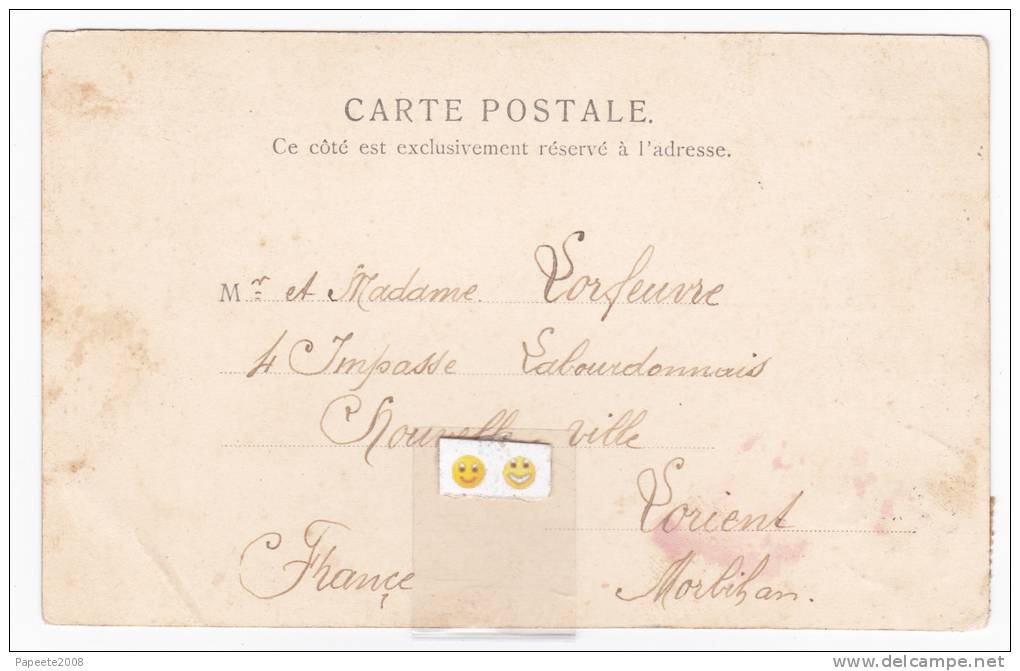 CARTE POSTALE.
Ce côté est exclusivement réservé à l'adresse.
Mr et Madame Lorfeuvre
4 Impasse Labourdonnais
Nouvelle-ville
Lorient
France Morbihan.
Papeete2008
www.delcampe.net